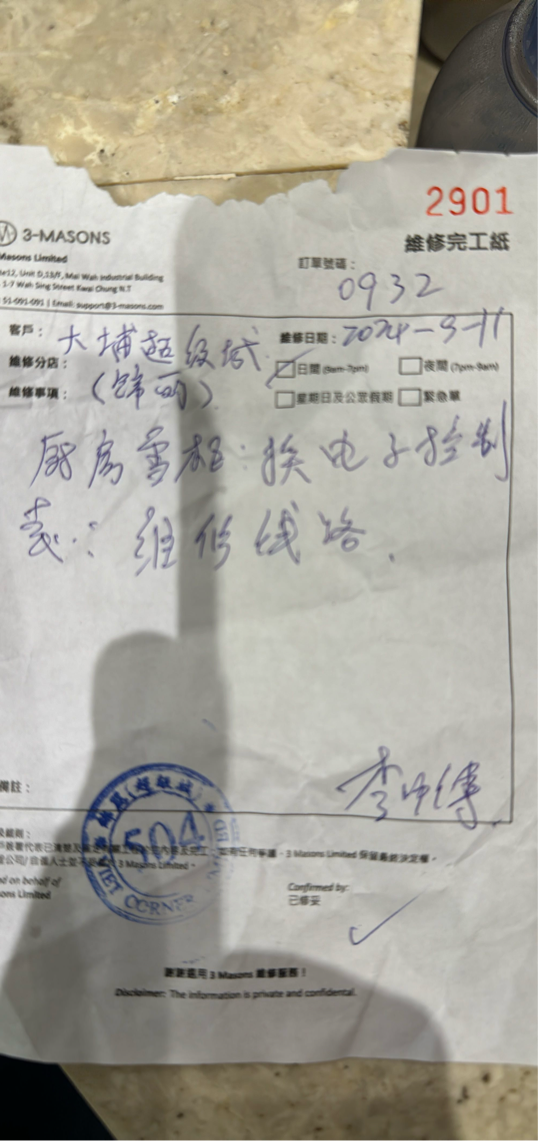 2901
3-MASONS
維修完工紙
Masons Limited
訂單號碼：
0932
Unit D,13/F, Mai Wah Industrial Building
1-7 Wah Sing Street Kwai Chung N.T
51-091-091 | Email: support@3-masons.com
客戶： 大埔超级城
維修日期： 2024-3-11
維修分店：
日間 (9am-7pm) 夜間 (7pm-9am)
維修事項：
星期日及公眾假期 緊急單
厨房雪柜：换电子控制
表：维修线路.
備註：
504
CORNER
3 Masons Limited 保留最終決定權。
3 Masons Limited。
nd on behalf of
ons Limited
Confirmed by:
已修妥
謝謝選用 3 Masons 維修服務！
Disclaimer: The information is private and confidential.